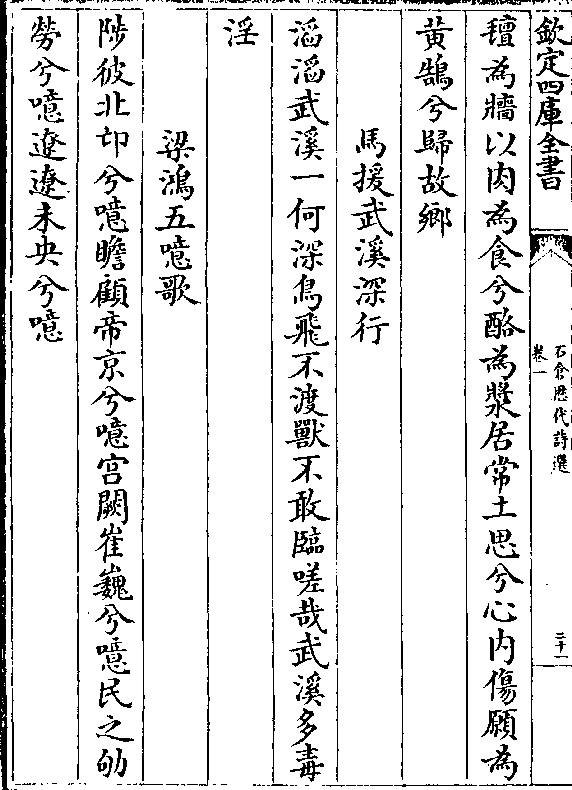 欽定四庫全書
石倉歷代詩選
卷一
三十一
氊為牆以肉為食兮酪為漿居常土思兮心内傷願為
黄鵠兮歸故鄉
馬援武溪深行
滔滔武溪一何深鳥飛不渡獸不敢臨嗟哉武溪多毒
淫
梁鴻五噫歌
陟彼北邙兮噫瞻顧帝京兮噫宫闕崔巍兮噫民之劬
勞兮噫遼遼未央兮噫